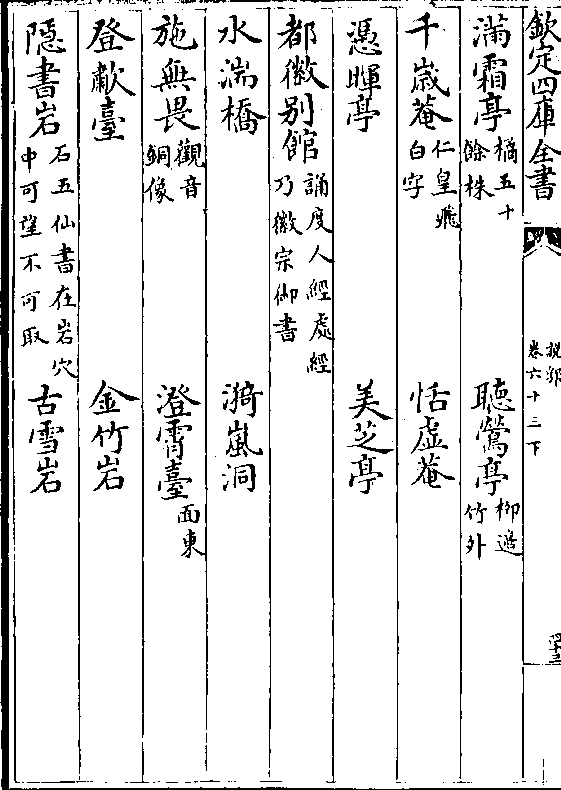 欽定四庫全書
說郛
卷六十三下
滿霜亭 橘五十餘株 聽鶯亭 柳邊竹外
千歲菴 仁皇飛白字 恬虛菴
憑暉亭 美芝亭
都徽别館 誦度人經處經乃徽宗御書
水湍橋 漪嵐洞
施無畏 觀音銅像 澄霄臺 面東
登歗臺 金竹岩
隱書岩 石五仙書在岩穴中可望不可取 古雪岩